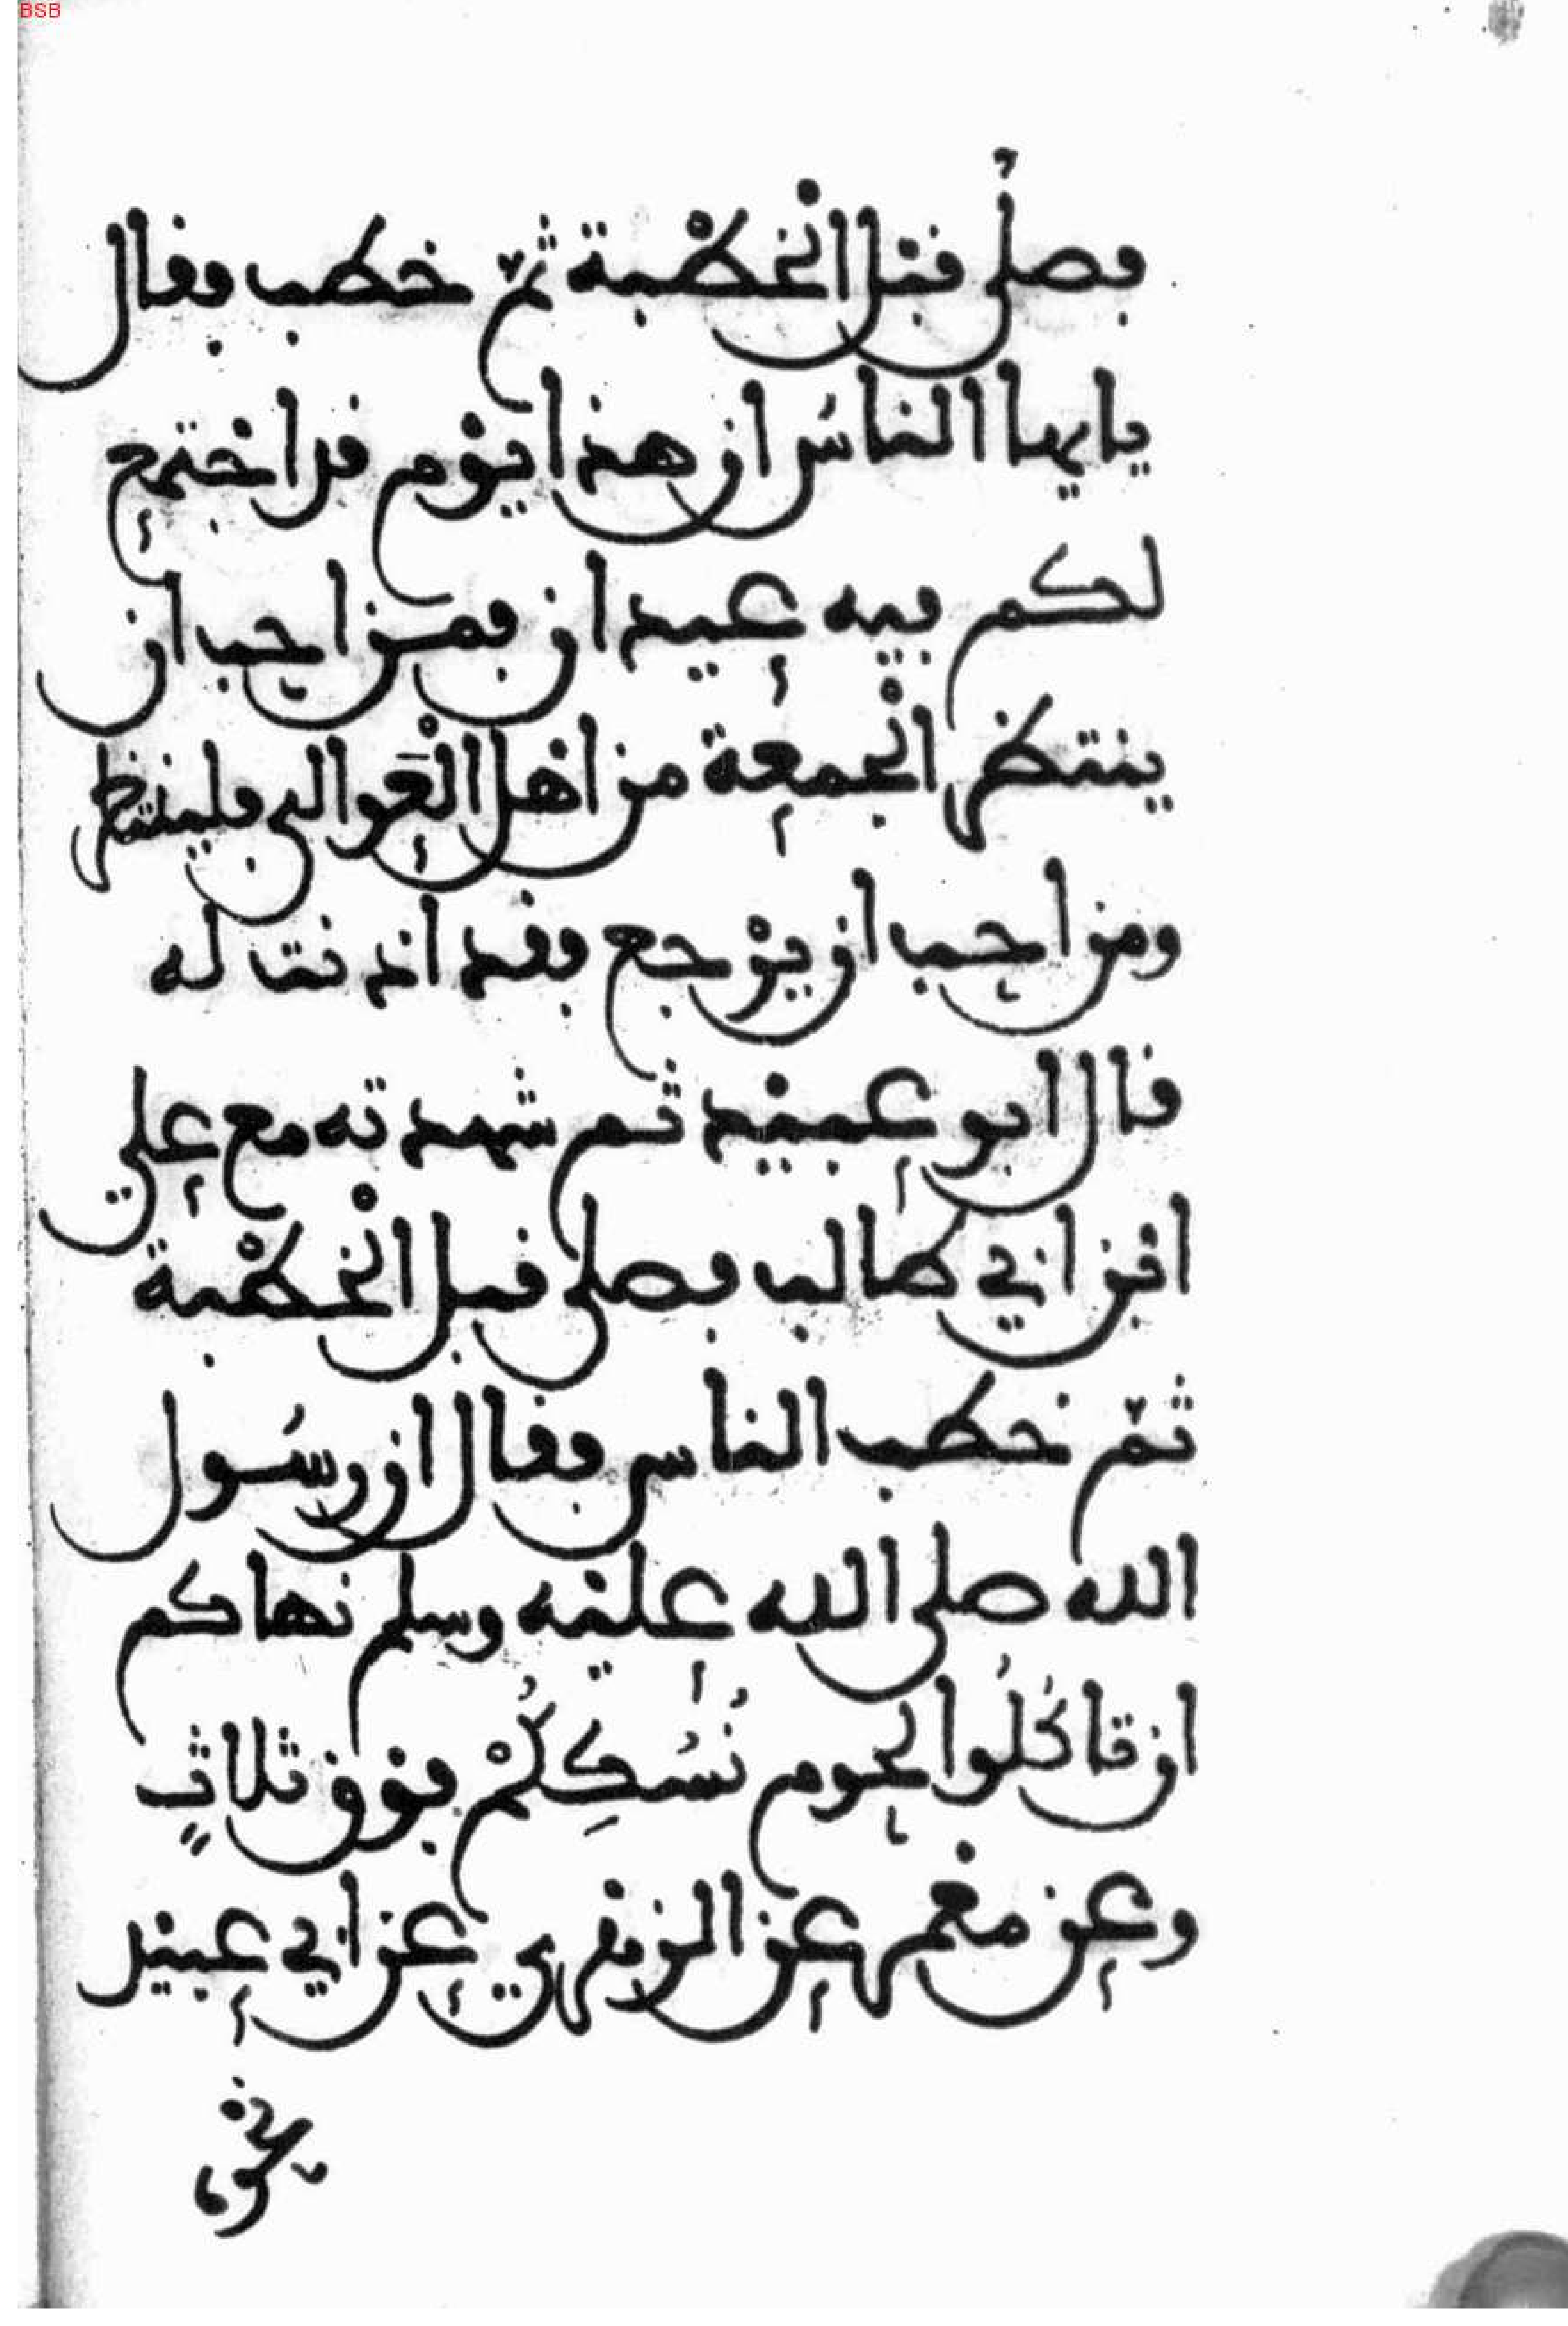 BSB
فصلى قبل الْخطْبة ثمّ خطب فقال
يايها الناسُ ان هذا يوْم قد اجْتمع
لكم فيه عيدان فمن احب ان
ينتظر الْجمعة من اهْل الْعَوالي فلينتظر
ومن احب ان يرْجع فقد اذنت له
قال ابو عبيْد ثم شهدته مع علي
ابْن ابي طالب فصلى قبل الْخطْبة
ثمّ خطب الناس فقال ان رسُول
الله صلى الله عليْه وسلم نهاكم
ان تاكُلُوا لحوم نُسُكِكُمْ فوْق ثلاثٍ
وعن معْمر عن الزهْري عن ابي عبيْد
نحْوه